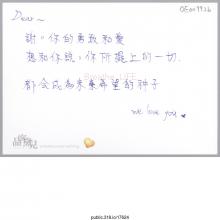 OEan1926
Dear~
謝。你的勇敢和愛
想和你說,你所遞上的一切.
都會成為未來希望的种子
we love you
public.318.io/17624